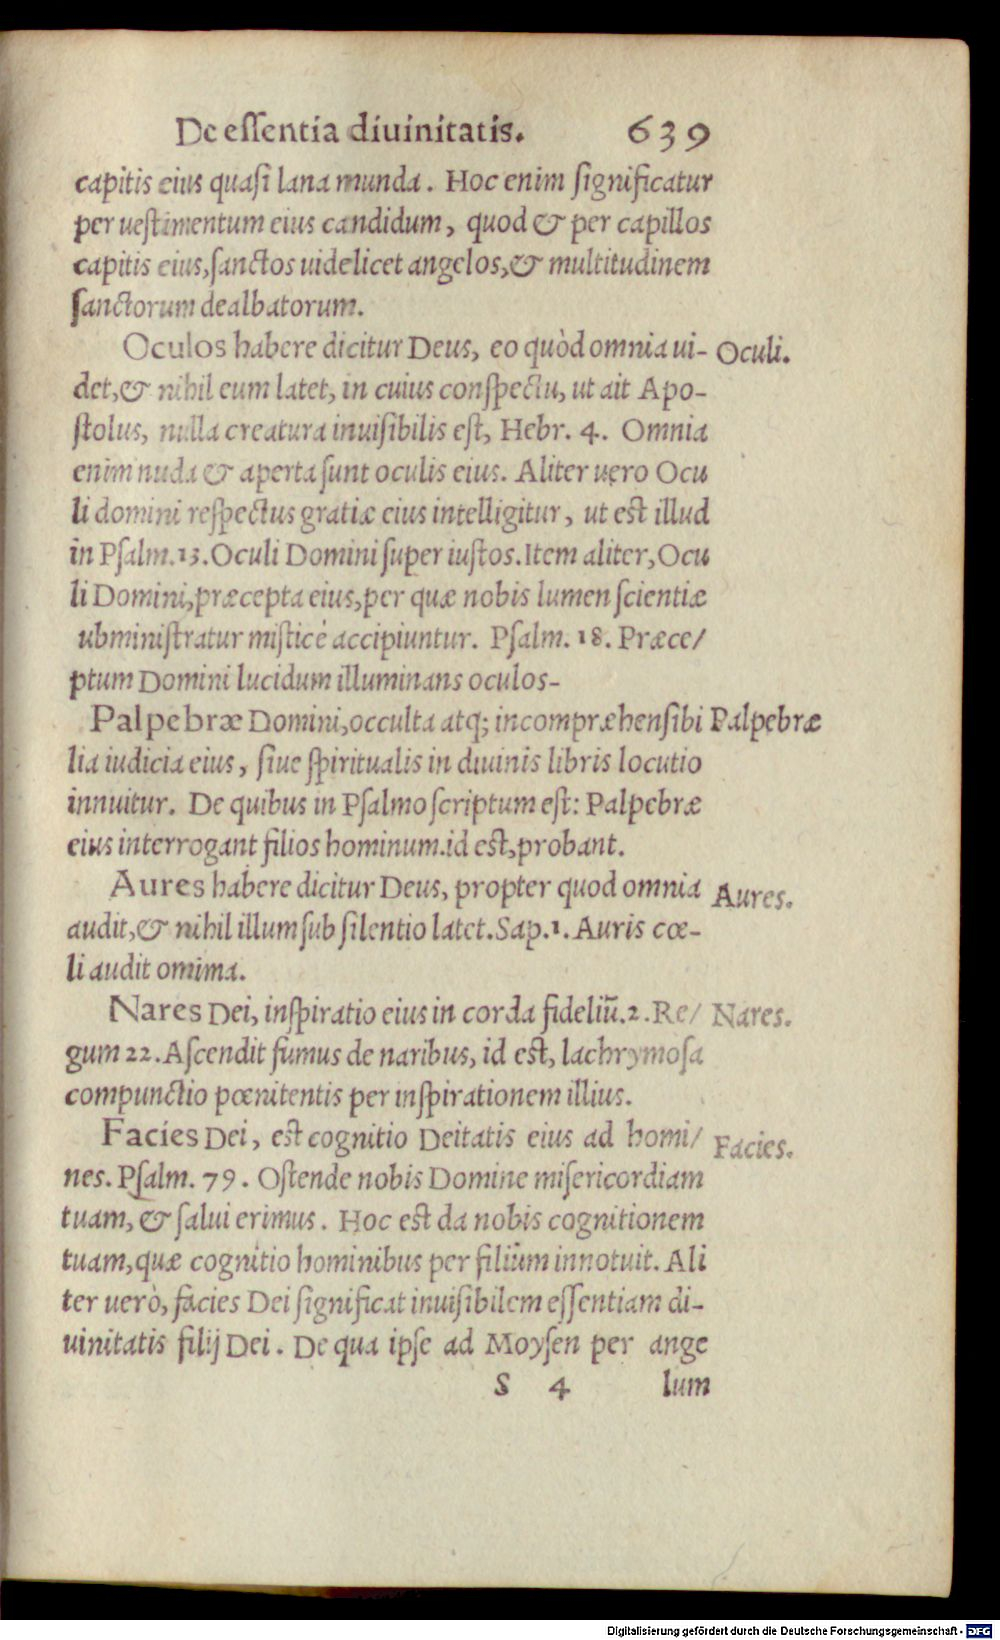 De essentia diuinitatis. 639
capitis eius quasi lana munda. Hoc enim significatur
per uestimentum eius candidum, quod & per capillos
capitis eius, sanctos uidelicet angelos, & multitudinem
sanctorum dealbatorum.
Oculos habere dicitur Deus, eo quòd omnia ui- Oculi.
det, & nihil eum latet, in cuius conspectu, ut ait Apo-
stolus, nulla creatura inuisibilis est, Hebr. 4. Omnia
enim nuda & aperta sunt oculis eius. Aliter vero Ocu
li domini respectus gratiæ eius intelligitur, ut est illud
in Psalm. 13. Oculi Domini super iustos. Item aliter, Ocu
li Domini, præcepta eius, per quæ nobis lumen scientiæ
ubministratur misticè accipiuntur. Psalm. 18. Præce/
ptum Domini lucidum illuminans oculos-
Palpebræ Domini, occulta atq; incompræhensibi Palpebræ
lia iudicia eius, siue spiritualis in diuinis libris locutio
innuitur. De quibus in Psalmo scriptum est: Palpebræ
eius interrogant filios hominum. id est, probant.
Aures habere dicitur Deus, propter quod omnia Aures.
audit, & nihil illum sub silentio latet. Sap. 1. Auris cœ-
li audit omima.
Nares Dei, inspiratio eius in corda fideliũ. 2. Re/ Nares.
gum 22. Ascendit fumus de naribus, id est, lachrymosa
compunctio pœnitentis per inspirationem illius.
Facies Dei, est cognitio Deitatis eius ad homi/ Facies.
nes. Psalm. 79. Ostende nobis Domine misericordiam
tuam, & salui erimus. Hoc est da nobis cognitionem
tuam, quæ cognitio hominibus per filium innotuit. Ali
ter uerò, facies Dei significat inuisibilem essentiam di-
uinitatis filij Dei. De qua ipse ad Moysen per ange
S 4 lum
Digitalisierung gefördert durch die Deutsche Forschungsgemeinschaft - DFG